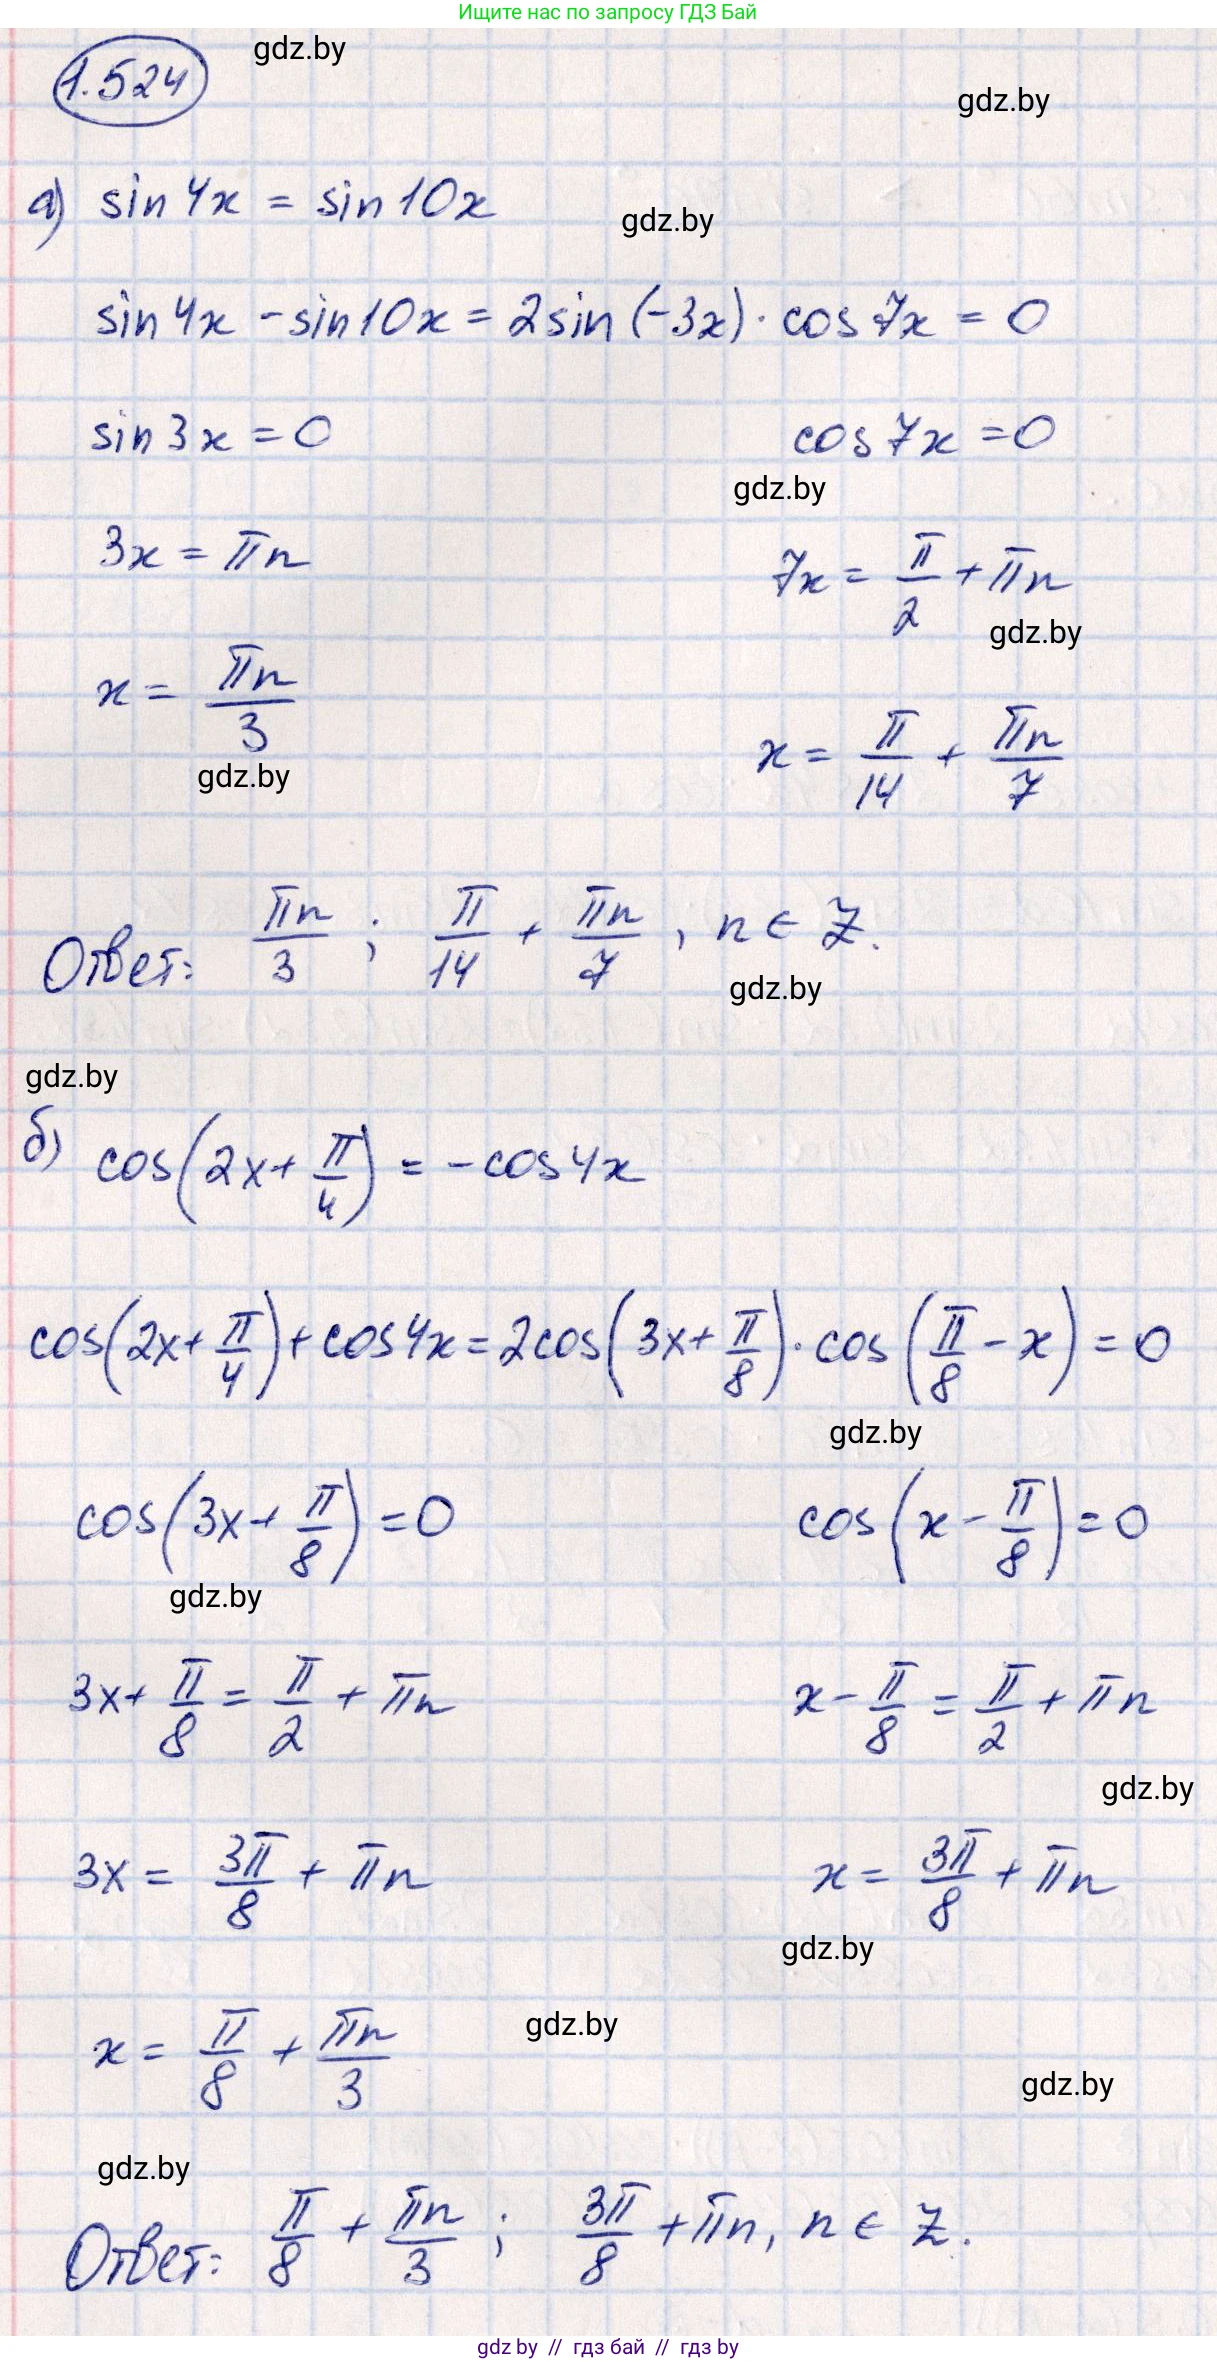 Ищите нас по запросу ГДЗ Бай
1.524
gdz.by
gdz.by
а) sin 4x = sin 10x
gdz.by
sin 4x - sin 10x = 2 sin (-3x) · cos 7x = 0
sin 3x = 0 cos 7x = 0
gdz.by
3x = πn 7x = π/2 + πn
gdz.by
x = πn/3 x = π/14 + πn/7
gdz.by
Ответ: πn/3 ; π/14 + πn/7 , n ∈ Z.
gdz.by
gdz.by
б) cos(2x + π/4) = - cos 4x
cos(2x + π/4) + cos 4x = 2 cos(3x + π/8) · cos(π/8 - x) = 0
gdz.by
cos(3x + π/8) = 0 cos(x - π/8) = 0
gdz.by
3x + π/8 = π/2 + πn x - π/8 = π/2 + πn
gdz.by
3x = 3π/8 + πn x = 3π/8 + πn
gdz.by
gdz.by
x = π/8 + πn/3
gdz.by
gdz.by
Ответ: π/8 + πn/3 ; 3π/8 + πn, n ∈ Z.
gdz by // гдз бай // гдз by